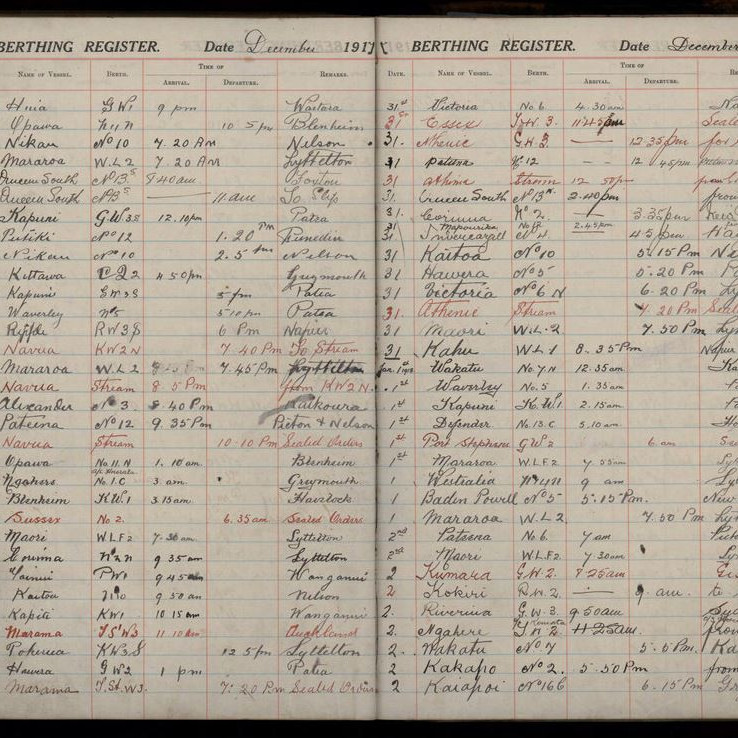 BERTHING REGISTER. Date December 1917
NAME OF VESSEL. BERTH. TIME OF ARRIVAL. DEPARTURE. REMARKS.
Huia G.W1 9 pm Waitara
Opawa 10 5 pm Blenheim
Nikau No 10 7.20 Am Nelson
Mararoa W.L.2 7 20 Am Lyttelton
Queen South 8 40am Foxton
Queen South 11 am To Slip
Kapuni G.W 3S 12.10pm Patea
Putiki No 12 1.20 Pm Dunedin
Nikau No 10 2.5 pm Nelson
4 50pm Greymouth
Kapuni 5 pm Patea
Waverley No5 5.10 pm Patea
RW3S 6 Pm Napier
Navua KW2N 7 40 Pm To Stream
Mararoa W.L.2 7.45 Pm Lyttelton
Navua Stream 8 5 Pm from KW2N
Alexander No 3. 8 40 Pm Kaikoura
Pateena No 12 9.35 Pm Picton & Nelson
Navua Stream 10.10 Pm Sealed Orders
Opawa No 11. N 1.10 am Blenheim
Ngahere No 1.C 3 am Greymouth
Blenheim KW1 3.15am Havelock
Sussex No 2. 6.35 am Sealed Orders
Maori W.L F2 7.30am Lyttelton
Corinna 9 35am Lyttelton
9 45am Wanganui
Kaitoa No 10 9 50 am Nelson
Kapiti KW1 10 15 am Wanganui
Marama T.S'W3 11.10am Auckland
Poherua KW3S 12 5 pm Lyttelton
Hawera GW2 1 pm Patea
Marama T.St.W3. 7.20 Pm Sealed Orders
BERTHING REGISTER. Date December
DATE. NAME OF VESSEL. BERTH. TIME OF ARRIVAL. DEPARTURE.
31st Victoria No 6 4.30am
31 Essex 11.45pm
31. Athenic G.W.3. — 12.35pm
31 Pateena No 12 — 12 45pm
31 Athenic Stream 12 50p
31. Queen South 2.40pm
31. Corinna No 2. — 3.35pm
31 Mapourika 2.45pm
31. Invercargill 4.5pm
31 Kaitoa No 10 5.15 Pm
31 Hawera No 5 5.20 Pm
31 Victoria No 6 N 6.20 Pm
31. Athenic Stream 7 20 Pm
31 Maori W.L.2 7.50 Pm
31 Kahu WL1 8.35Pm Napier
Jan. 1st Wakatu No.7.N 12.35am
1st Waverley No.5 1.35am
1st Kapuni K.W1 2.15am
1st Defender No.13.C 5.10am
1st Port Stephens GW2 6. am
1st Mararoa W.LF2 7 55am
1 Westralia 9 am
1 Baden Powell No 5 5.15 Pm. New
1 Mararoa W.L2. 7.50 Pm
2nd Pateena No 6 7am
2nd Maori W.LF2 7.30am
2 Kumara G.W.2. 7.25am
2 Kokiri R.W.2. — 9. am. to
2. Riverina G.W.3. 9.50am
2. Ngahere 11.25am. from
2.. Wakatu No 7 5.5 Pm.
2 Kakapo No 2. 5.50 Pm from
2 Kaiapoi No 16 C 6.15 Pm